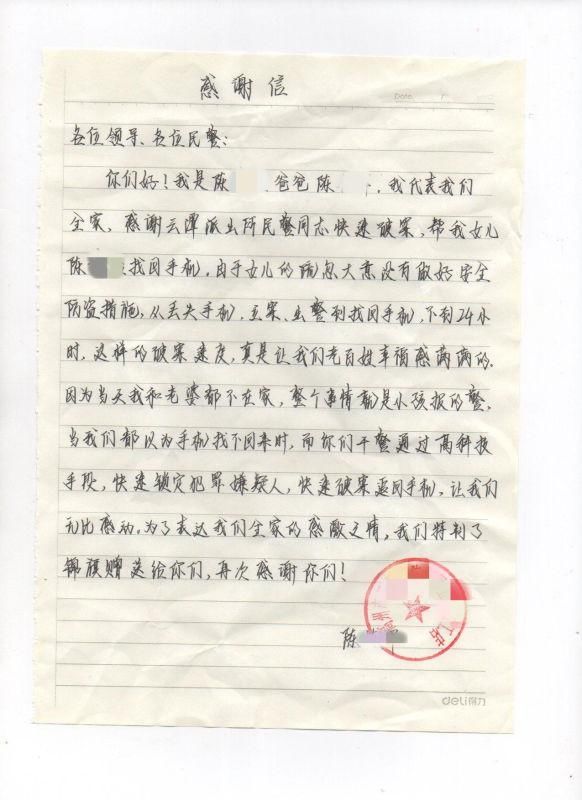 感谢信
Date
各位领导、各位民警：
你们好！我是陈 爸爸陈 ，我代表我们
全家，感谢云潭派出所民警同志快速破案，帮我女儿
陈 找回手机，由于女儿的疏忽大意没有做好安全
防盗措施，从丢失手机，立案、出警到找回手机，不到24小
时，这样的破案速度，真是让我们老百姓幸福感满满的。
因为当天我和老婆都不在家，整个事情都是小孩报的警，
当我们都以为手机找不回来时，而你们干警通过高科技
手段，快速锁定犯罪嫌疑人，快速破案返回手机，让我们
无比感动，为了表达我们全家的感激之情，我们特制了
锦旗赠送给你们，再次感谢你们！
陈
deli得力